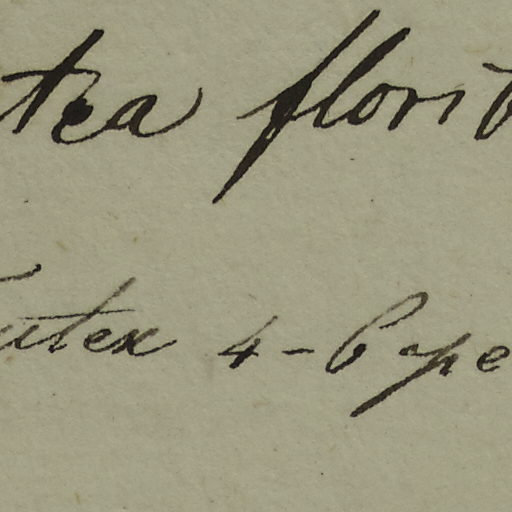 tea florib
utex 4-6 ape